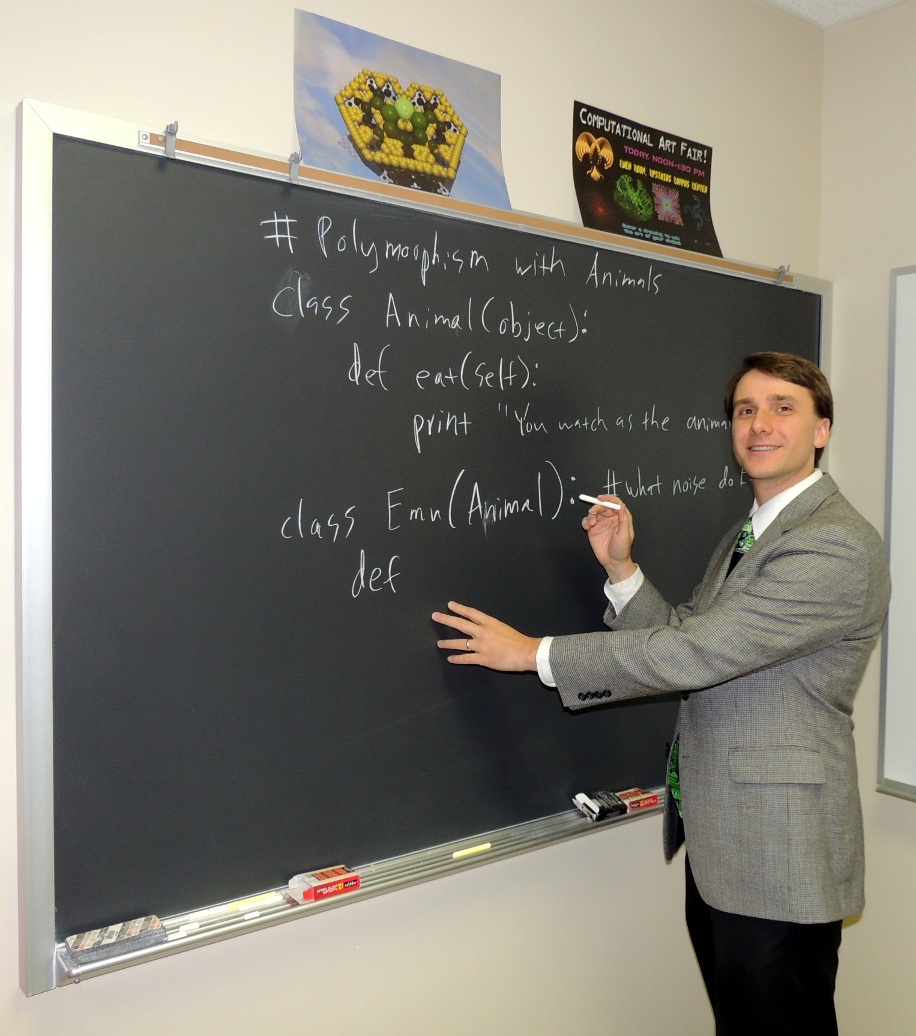 COMPUTATIONAL ART FAIR!
TODAY, NOON-1:30 PM
EVEN ROOM, UPSTAIRS CAMPUS CENTER
# Polymorphism with Animals
class Animal(object):
def eat(self):
print "You watch as the anima
class Emu(Animal): #what noise do
def